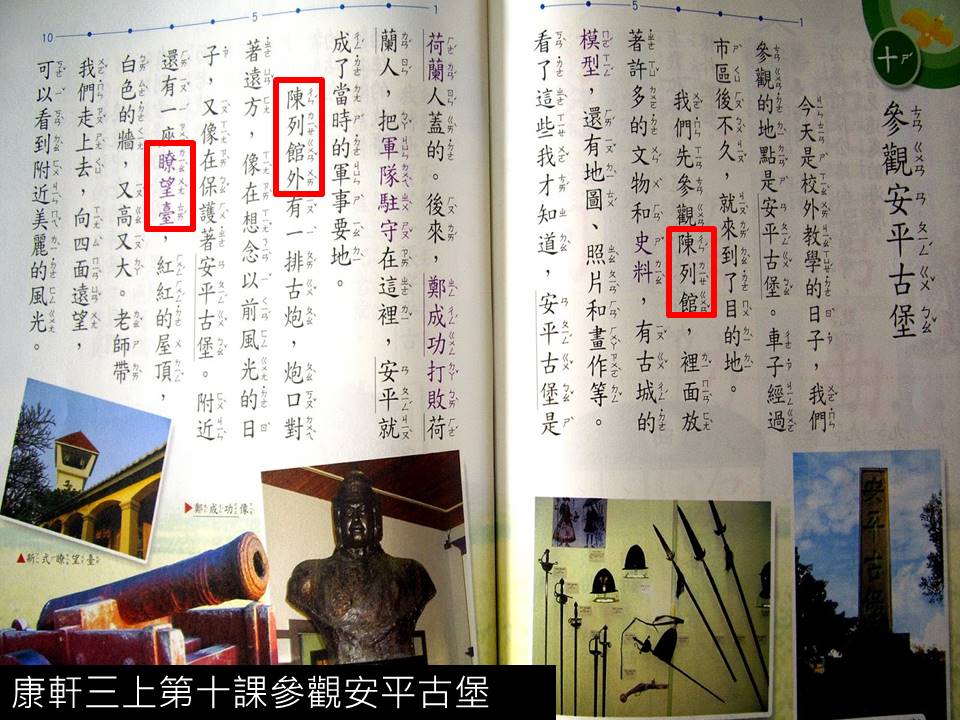 十
參觀安平古堡
今天是校外教學的日子，我們
參觀的地點是安平古堡。車子經過
市區後不久，就來到了目的地。
我們先參觀陳列館，裡面放
著許多的文物和史料，有古城的
模型，還有地圖、照片和畫作等。
看了這些我才知道，安平古堡是
荷蘭人蓋的。後來，鄭成功打敗荷
蘭人，把軍隊駐守在這裡，安平就
成了當時的軍事要地。
陳列館外有一排古炮，炮口對
著遠方，像在想念以前風光的日
子，又像在保護著安平古堡。附近
還有一座瞭望臺，紅紅的屋頂，
白色的牆，又高又大。老師帶
我們走上去，向四面遠望，
可以看到附近美麗的風光。
1
5
1
5
10
▶鄭成功像
▲新式瞭望臺
安平古堡
康軒三上第十課參觀安平古堡